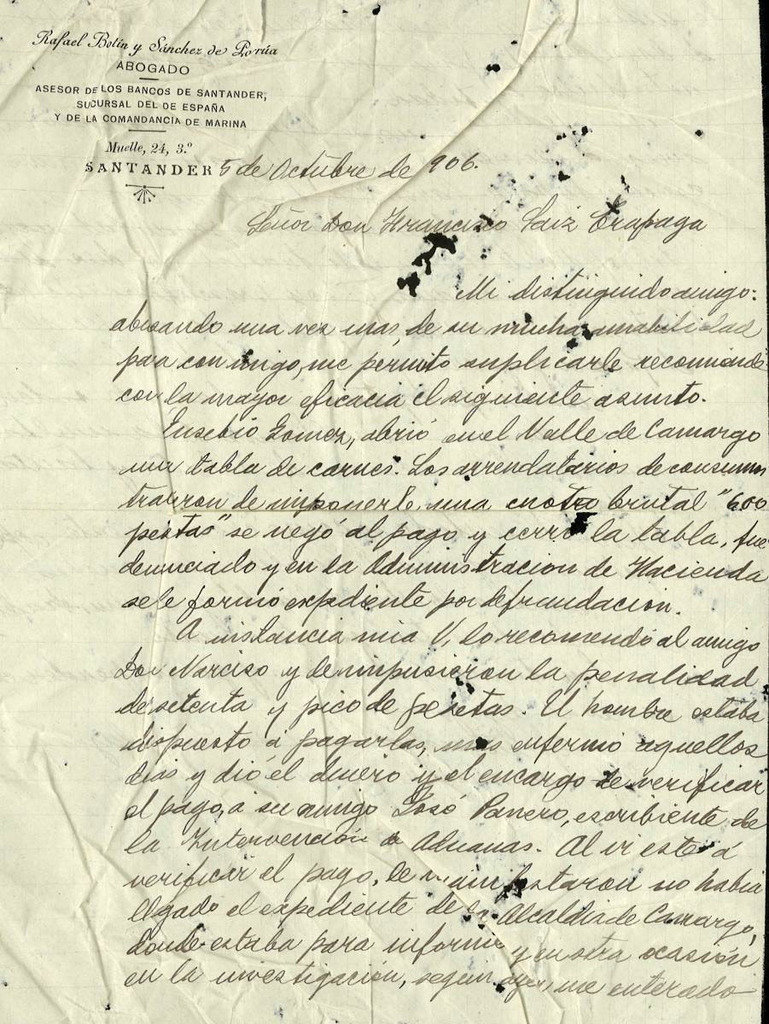 Rafael Botín y Sánchez de Porúa
ABOGADO
ASESOR DE LOS BANCOS DE SANTANDER,
SUCURSAL DEL DE ESPAÑA
Y DE LA COMANDANCIA DE MARINA
Muelle, 24, 3.º
SANTANDER 5 de Octubre de 906.
Señor Don Francisco Saiz Trapaga
Mi distinguido amigo:
abusando una vez mas, de su mucha amabilidad
para con migo, me permito suplicarle recomiende
con la mayor eficacia el siguiente asunto.
Eusebio Gomez, abrió en el Valle de Camargo
una tabla de carnes. Los arrendatarios de consumos
trataron de imponerle una cuota brutal "600
pestas" se negó al pago y cerró la tabla, fue
denunciado y en la Administracion de Hacienda
se le formó expediente por defraudacion.
A instancia mia V, lo recomendó al amigo
Don Narciso y le impusieron la penalidad
de setenta y pico de pesetas. El hombre estaba
dispuesto á pagarlas, mas enfermó aquellos
dias y dió el dinero y el encargo de verificar
el pago, a su amigo José Panero, escribiente de
la Intervención de Aduanas. Al ir este á
verificar el pago, le manifestaron no habia
llegado el expediente de la Alcaldia de Camargo,
donde estaba para informe y en otra ocasión
en la investigación, segun ayer, me enterado